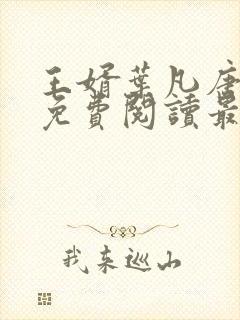 王婿葉凡唐
免費閱讀最
我来巡山